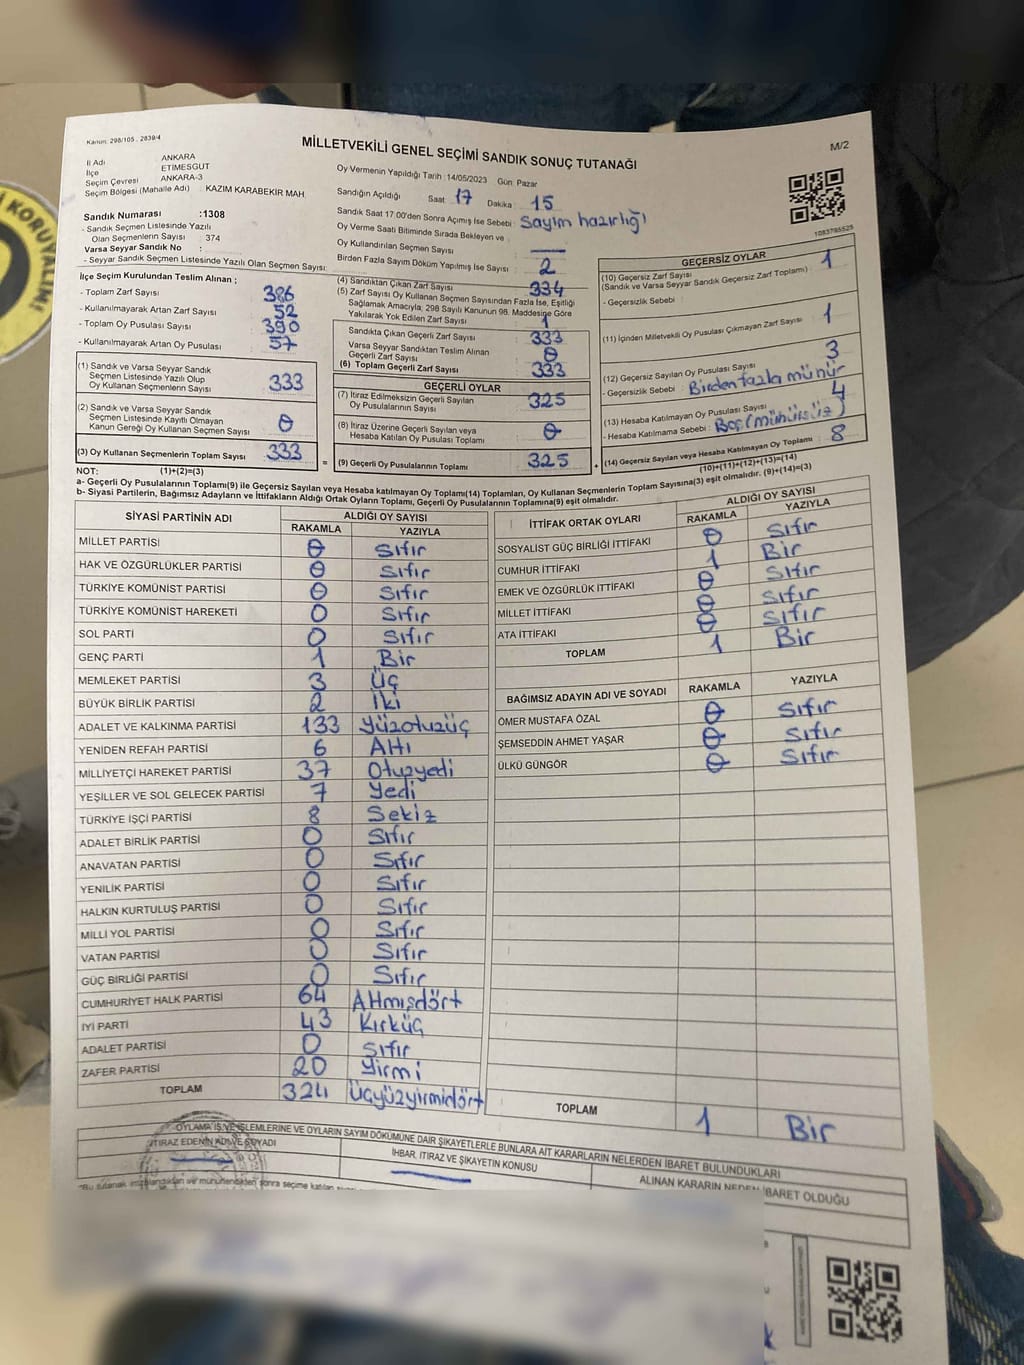 KORUYALIM!
Kanun: 298/105 , 2839/4
MİLLETVEKİLİ GENEL SEÇİMİ SANDIK SONUÇ TUTANAĞI
M/2
İl Adı ANKARA
İlçe ETİMESGUT
Seçim Çevresi ANKARA-3
Seçim Bölgesi (Mahalle Adı) KAZIM KARABEKİR MAH.
Sandık Numarası :1308
- Sandık Seçmen Listesinde Yazılı
Olan Seçmenlerin Sayısı : 374
Varsa Seyyar Sandık No :
- Seyyar Sandık Seçmen Listesinde Yazılı Olan Seçmen Sayısı:
Oy Vermenin Yapıldığı Tarih :14/05/2023 Gün: Pazar
Sandığın Açıldığı Saat 17 Dakika : 15
Sandık Saat 17.00'den Sonra Açılmış İse Sebebi: Sayım hazırlığı
Oy Verme Saati Bitiminde Sırada Bekleyen ve
Oy Kullandırılan Seçmen Sayısı —
Birden Fazla Sayım Döküm Yapılmış İse Sayısı : 2
1083785525
İlçe Seçim Kurulundan Teslim Alınan ;
- Toplam Zarf Sayısı : 386
- Kullanılmayarak Artan Zarf Sayısı : 52
- Toplam Oy Pusulası Sayısı : 390
- Kullanılmayarak Artan Oy Pusulası : 57
(1) Sandık ve Varsa Seyyar Sandık
Seçmen Listesinde Yazılı Olup
Oy Kullanan Seçmenlerin Sayısı : 333
(2) Sandık ve Varsa Seyyar Sandık
Seçmen Listesinde Kayıtlı Olmayan
Kanun Gereği Oy Kullanan Seçmen Sayısı : 0
(3) Oy Kullanan Seçmenlerin Toplam Sayısı : 333
(4) Sandıktan Çıkan Zarf Sayısı : 334
(5) Zarf Sayısı Oy Kullanan Seçmen Sayısından Fazla İse, Eşitliği
Sağlamak Amacıyla; 298 Sayılı Kanunun 98. Maddesine Göre
Yakılarak Yok Edilen Zarf Sayısı : 1
Sandıkta Çıkan Geçerli Zarf Sayısı : 333
Varsa Seyyar Sandıktan Teslim Alınan
Geçerli Zarf Sayısı : 0
(6) Toplam Geçerli Zarf Sayısı : 333
GEÇERLİ OYLAR
(7) İtiraz Edilmeksizin Geçerli Sayılan
Oy Pusulalarının Sayısı : 325
(8) İtiraz Üzerine Geçerli Sayılan veya
Hesaba Katılan Oy Pusulası Toplamı : 0
= (9) Geçerli Oy Pusulalarının Toplamı : 325 +
GEÇERSİZ OYLAR
(10) Geçersiz Zarf Sayısı
(Sandık ve Varsa Seyyar Sandık Geçersiz Zarf Toplamı) : 1
- Geçersizlik Sebebi :
(11) İçinden Milletvekili Oy Pusulası Çıkmayan Zarf Sayısı : 1
(12) Geçersiz Sayılan Oy Pusulası Sayısı : 3
- Geçersizlik Sebebi : Birden fazla mühür
(13) Hesaba Katılmayan Oy Pusulası Sayısı : 4
- Hesaba Katılmama Sebebi : Boş (mühürsüz)
(14) Geçersiz Sayılan veya Hesaba Katılmayan Oy Toplamı : 8
NOT: (1)+(2)=(3)
(10)+(11)+(12)+(13)=(14)
a- Geçerli Oy Pusulalarının Toplamı(9) ile Geçersiz Sayılan veya Hesaba katılmayan Oy Toplamı(14) Toplamları, Oy Kullanan Seçmenlerin Toplam Sayısına(3) eşit olmalıdır. (9)+(14)=(3)
b- Siyasi Partilerin, Bağımsız Adayların ve İttifakların Aldığı Ortak Oyların Toplamı, Geçerli Oy Pusulalarının Toplamına(9) eşit olmalıdır.
SİYASİ PARTİNİN ADI ALDIĞI OY SAYISI
RAKAMLA YAZIYLA
MİLLET PARTİSİ 0 Sıfır
HAK VE ÖZGÜRLÜKLER PARTİSİ 0 Sıfır
TÜRKİYE KOMÜNİST PARTİSİ 0 Sıfır
TÜRKİYE KOMÜNİST HAREKETİ 0 Sıfır
SOL PARTİ 0 Sıfır
GENÇ PARTİ 1 Bir
MEMLEKET PARTİSİ 3 Üç
BÜYÜK BİRLİK PARTİSİ 2 İki
ADALET VE KALKINMA PARTİSİ 133 Yüzotuzüç
YENİDEN REFAH PARTİSİ 6 Altı
MİLLİYETÇİ HAREKET PARTİSİ 37 Otuzyedi
YEŞİLLER VE SOL GELECEK PARTİSİ 7 Yedi
TÜRKİYE İŞÇİ PARTİSİ 8 Sekiz
ADALET BİRLİK PARTİSİ 0 Sıfır
ANAVATAN PARTİSİ 0 Sıfır
YENİLİK PARTİSİ 0 Sıfır
HALKIN KURTULUŞ PARTİSİ 0 Sıfır
MİLLİ YOL PARTİSİ 0 Sıfır
VATAN PARTİSİ 0 Sıfır
GÜÇ BİRLİĞİ PARTİSİ 0 Sıfır
CUMHURİYET HALK PARTİSİ 64 Altmışdört
İYİ PARTİ 43 Kırküç
ADALET PARTİSİ 0 Sıfır
ZAFER PARTİSİ 20 Yirmi
TOPLAM 324 Üçyüzyirmidört
İTTİFAK ORTAK OYLARI ALDIĞI OY SAYISI
RAKAMLA YAZIYLA
SOSYALİST GÜÇ BİRLİĞİ İTTİFAKI 0 Sıfır
CUMHUR İTTİFAKI 1 Bir
EMEK VE ÖZGÜRLÜK İTTİFAKI 0 Sıfır
MİLLET İTTİFAKI 0 Sıfır
ATA İTTİFAKI 0 Sıfır
TOPLAM 1 Bir
BAĞIMSIZ ADAYIN ADI VE SOYADI RAKAMLA YAZIYLA
ÖMER MUSTAFA ÖZAL 0 Sıfır
ŞEMSEDDİN AHMET YAŞAR 0 Sıfır
ÜLKÜ GÜNGÖR 0 Sıfır
TOPLAM 1 Bir
OYLAMA İŞ VE İŞLEMLERİNE VE OYLARIN SAYIM DÖKÜMÜNE DAİR ŞİKAYETLERLE BUNLARA AİT KARARLARIN NELERDEN İBARET BULUNDUKLARI
İTİRAZ EDENİN ADI VE SOYADI İHBAR, İTİRAZ VE ŞİKAYETİN KONUSU ALINAN KARARIN NEDEN İBARET OLDUĞU
*Bu tutanak imzalandıktan ve mühürlendikten sonra seçime katılan